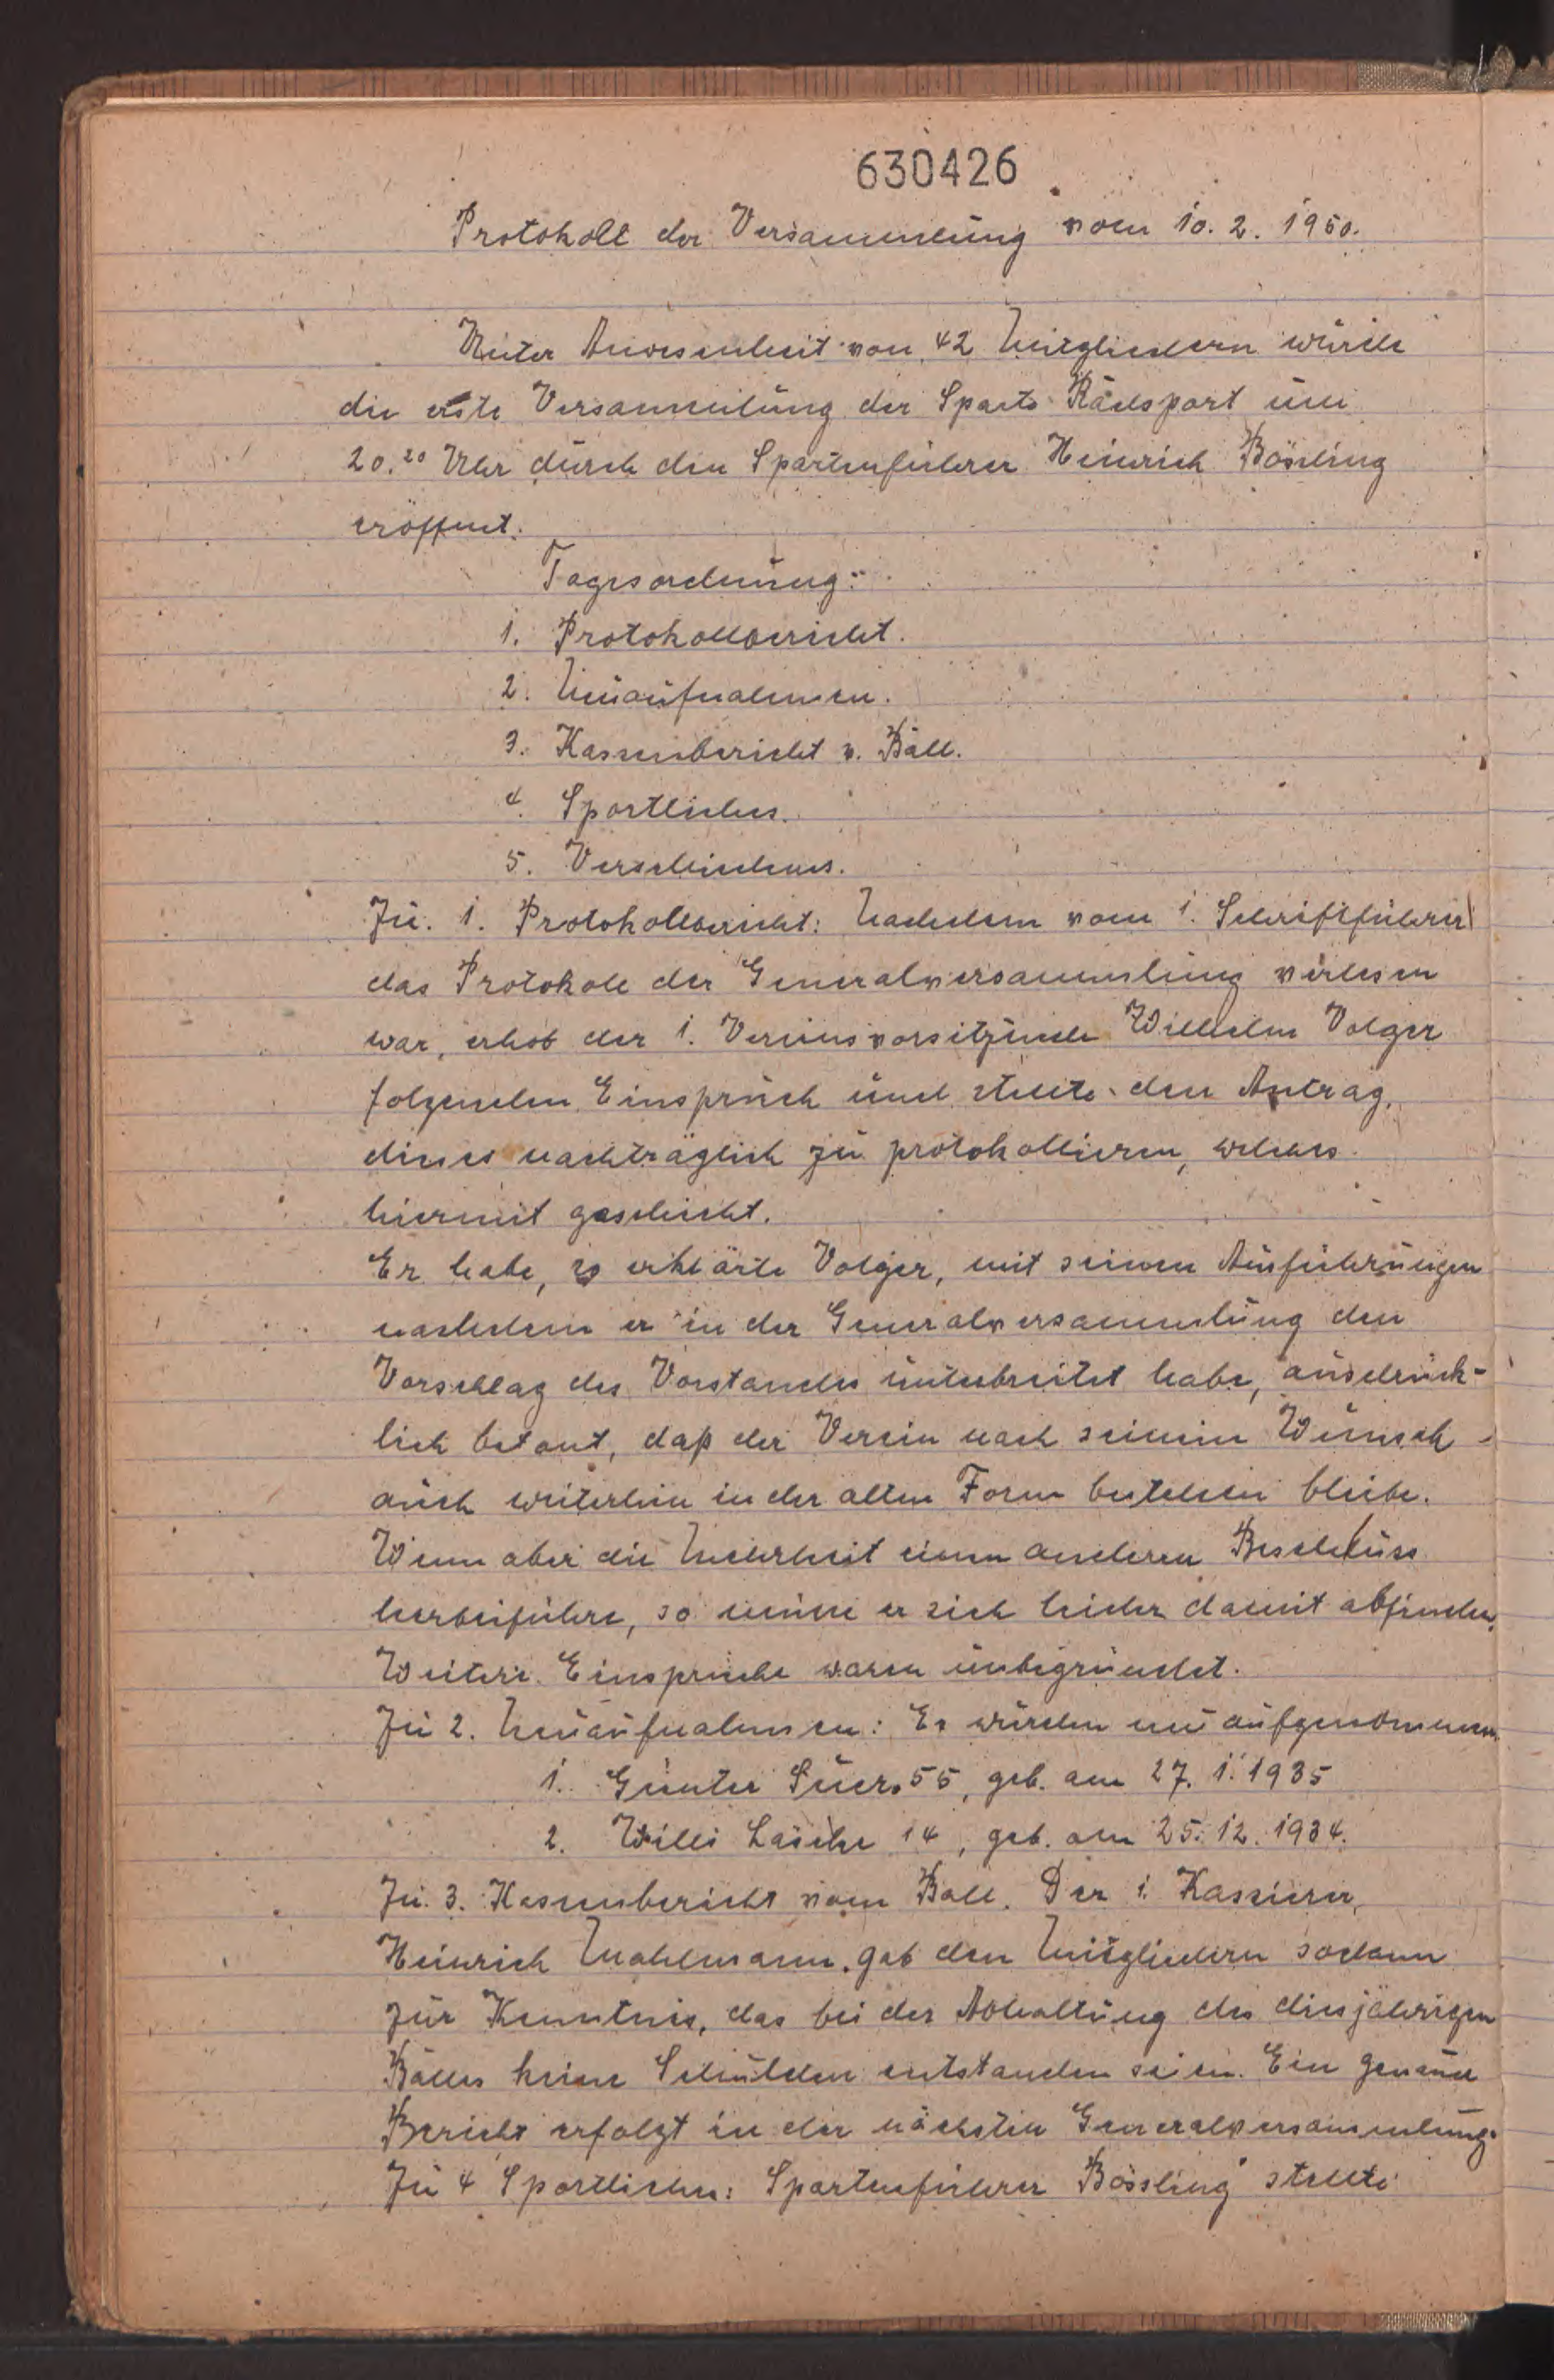 630426
Protokoll der Versammlung vom 10. 2. 1950.
Unter Anwesenheit von 42 Mitgliedern wurde
die erste Versammlung der Sparte Radsport um
20.20 Uhr durch den Spartenführer Heinrich Bössling
eröffnet.
Tagesordnung:
1. Protokollbericht.
2. Neuaufnahmen.
3. Kassenbericht v. Ball.
4. Sportliches.
5. Verschiedenes.
Zu. 1. Protokollbericht: Nachdem vom 1. Schriftführer
das Protokoll der Generalversammlung verlesen
war, erhob der 1. Vereinsvorsitzende Wilhelm Volger
folgenden Einspruch und stellte den Antrag,
dieses nachträglich zu protokollieren, welches
hiermit geschieht.
Er habe, so erklärte Volger, mit seinen Ausführungen
nachdem er in der Generalversammlung den
Vorschlag des Vorstandes unterbreitet habe, ausdrück-
lich betont, daß der Verein nach seinem Wunsch
auch weiterhin in der alten Form bestehen bleibe.
Wenn aber die Mehrheit einen anderen Beschluss
herbeiführe, so müsse er sich leider damit abfinden.
Weitere Einsprüche waren unbegründet.
Zu 2. Neuaufnahmen: Es wurden neu aufgenommen.
1. Günter Suer. 55, geb. am 27. 1. 1935
2. Willi 14, geb. am 25. 12. 1934.
Zu. 3. Kassenbericht vom Ball. Der 1. Kassierer,
Heinrich Mahlmann, gab den Mitgliedern sodann
zur Kenntnis, das bei der Abhaltung des diesjährigen
Balles keine Schulden entstanden seien. Ein genauer
Bericht erfolgt in der nächsten Generalversammlung.
Zu 4 Sportliches: Spartenführer Bössling stellte